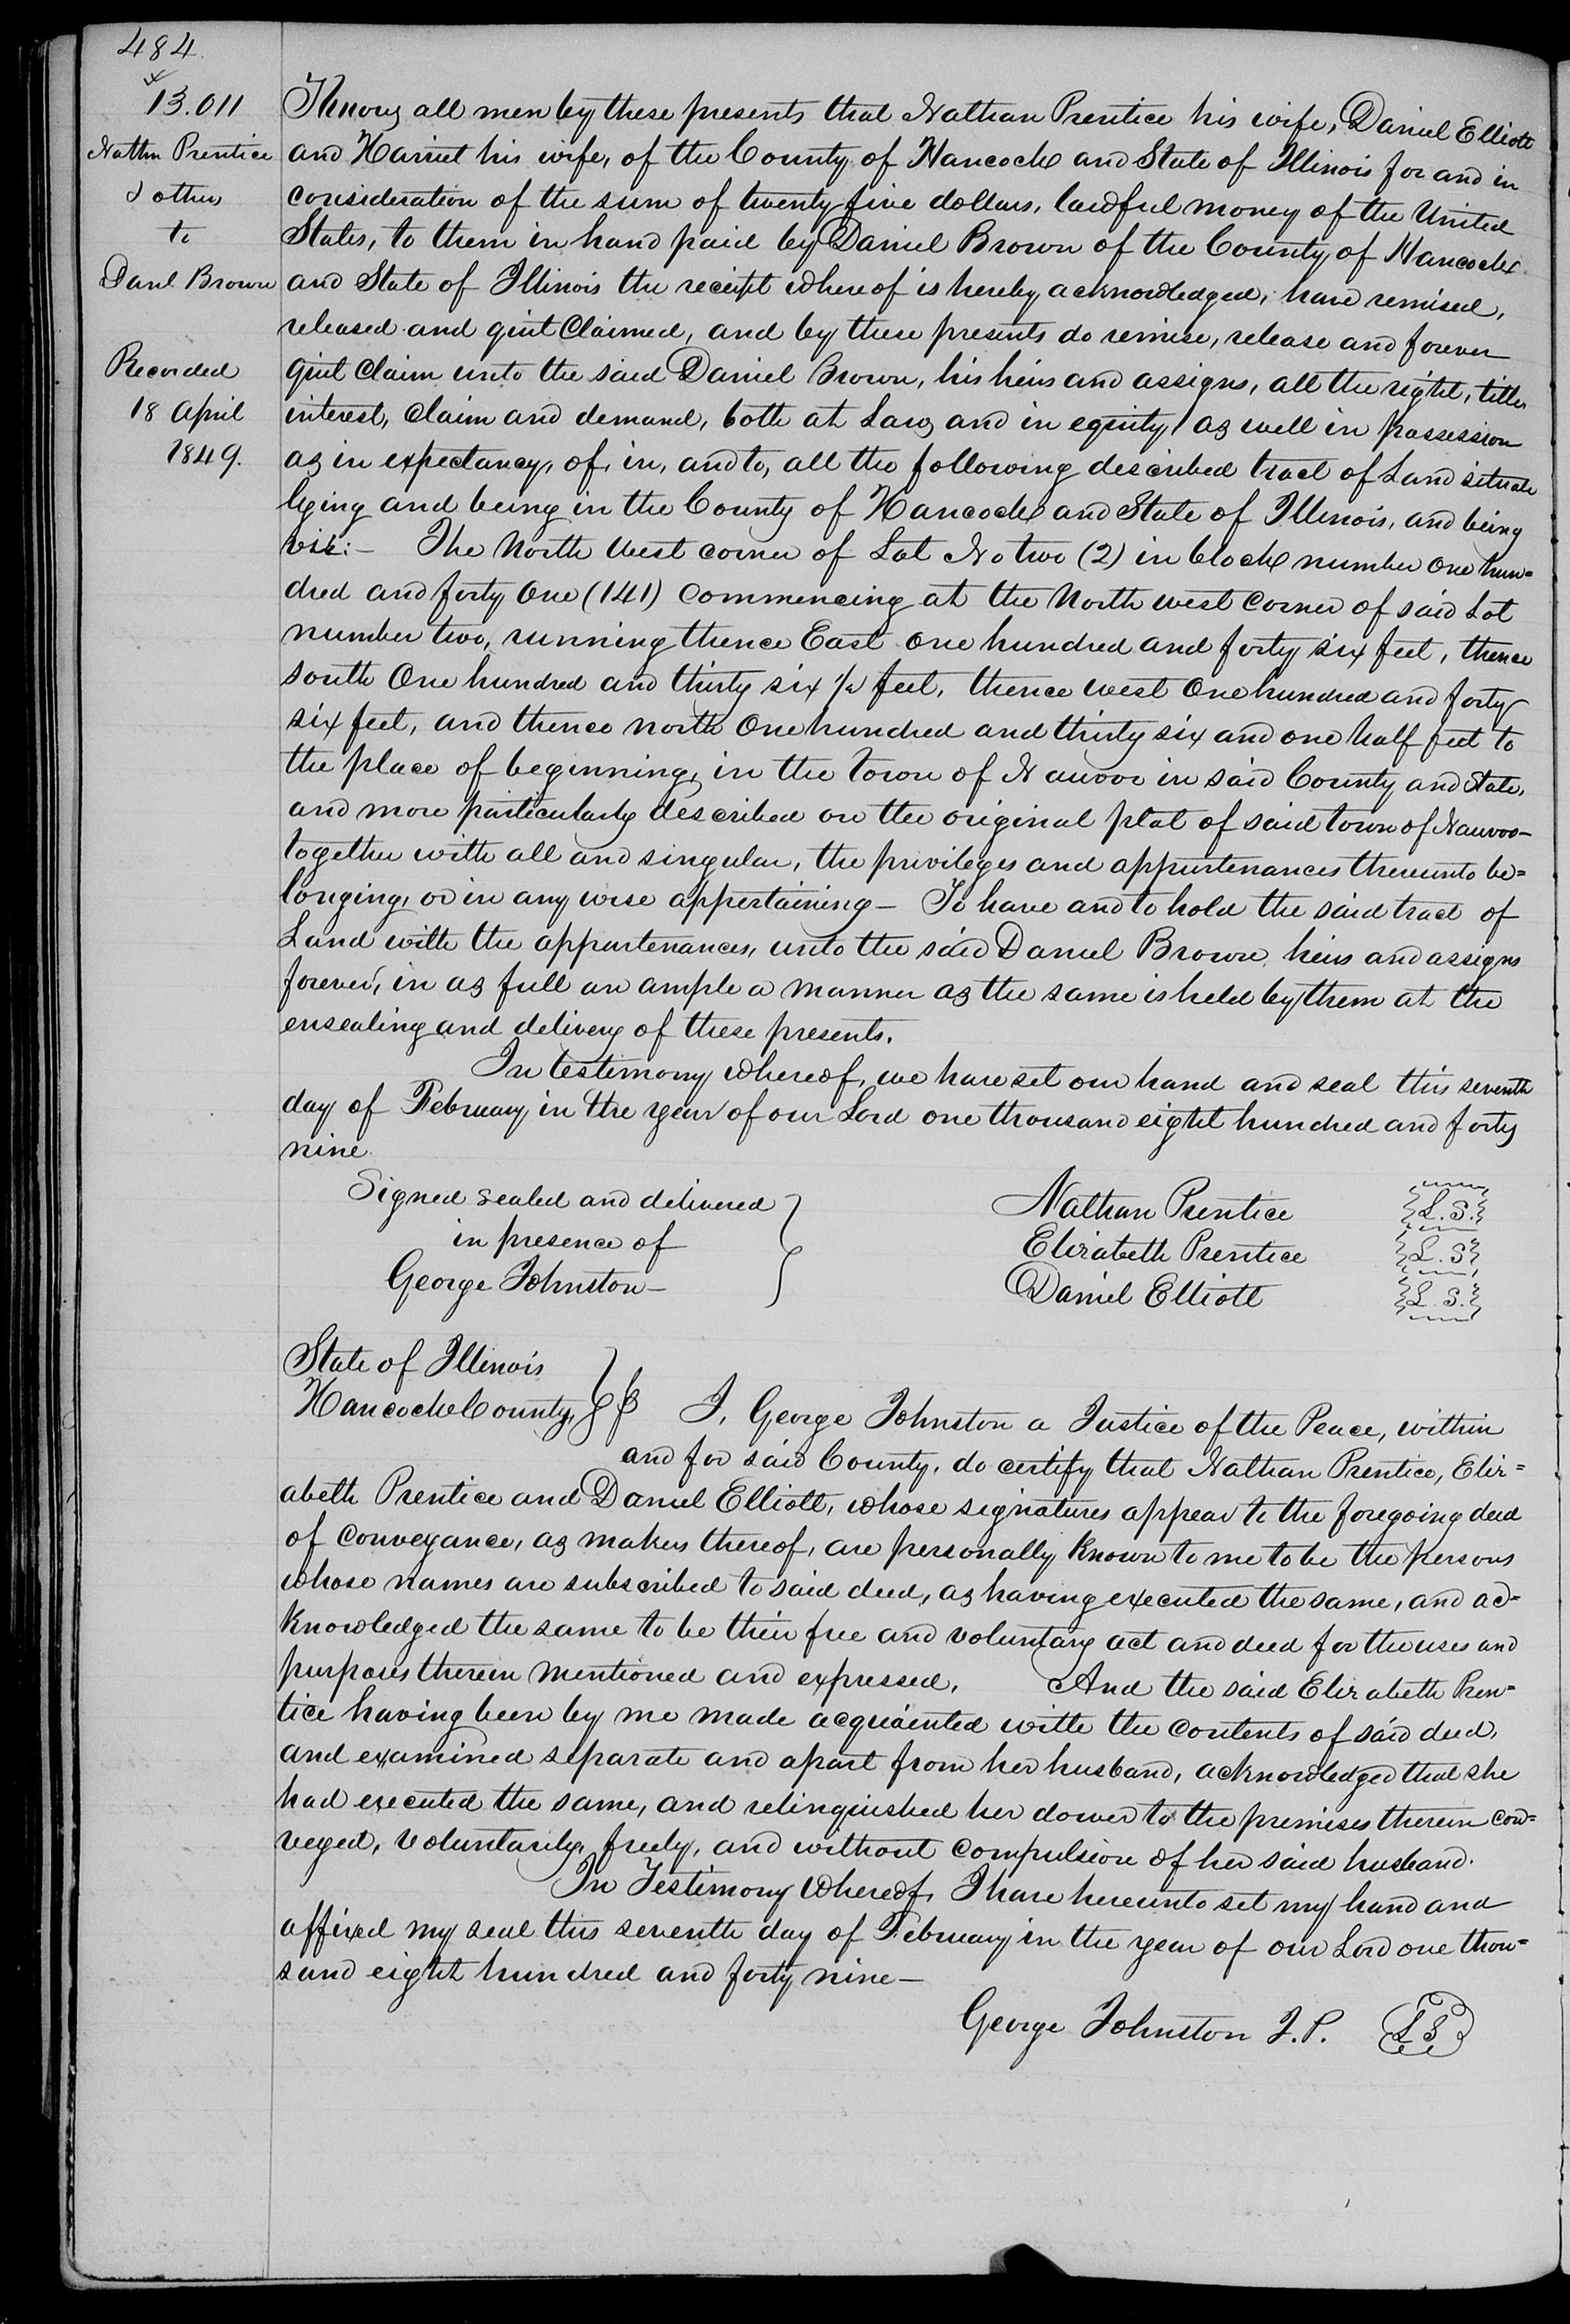 484
13.011
Nathn Prentice
& others
to
Danl Brown
Recorded
18 April
1849.
Know all men by these presents that Nathan Prentice his wife, Daniel Elliott
and Harriet his wife, of the County of Hancock and State of Illinois for and in
consideration of the sum of twenty five dollars, lawful money of the United
States, to them in hand paid by Daniel Brown of the County of Hancock
and State of Illinois the receipt whereof is hereby acknowledged, have remised,
released and quit Claimed, and by these presents do remise, release and forever
quit Claim unto the said Daniel Brown, his heirs and assigns, all the right, title
interest, Claim and demand, both at Law, and in equity, as well in possession
as in expectancy, of, in, and to, all the following described tract of Land situate
lying and being in the County of Hancock and State of Illinois, and being
viz:- The North West corner of Lot No two (2) in block number One hun=
dred and forty One (141) Commencing at the North west Corner of said Lot
number two, running thence East one hundred and forty six feet, thence
south One hundred and thirty six ½ feet, thence west One hundred and forty
six feet, and thence north One hundred and thirty six and one half feet to
the place of beginning, in the town of Nauvoo in said County and State,
and more particularly described on the original plat of said town of Nauvoo-
together with all and singular, the privileges and appurtenances thereunto be=
longing, or in any wise appertaining- To have and to hold the said tract of
Land with the appurtenances, unto the said Daniel Brown heirs and assigns
forever, in as full an ample a manner as the same is held by them at the
ensealing and delivery of these presents.
In testimony whereof, we have set our hand and seal this seventh
day of February in the year of our Lord one thousand eight hundred and forty
nine.
Signed sealed and delivered
in presence of
George Johnston-
Nathan Prentice L.S.
Elizabeth Prentice L.S.
Daniel Elliott L.S.
State of Illinois
Hancock County, ss I, George Johnston a Justice of the Peace, within
and for said County, do certify that Nathan Prentice, Eliz=
abeth Prentice and Daniel Elliott, whose signatures appear to the foregoing deed
of Conveyance, as makers thereof, are personally known to me to be the persons
whose names are subscribed to said deed, as having executed the same, and ac=
knowledged the same to be their free and voluntary act and deed for the uses and
purposes therein mentioned and expressed. And the said Elizabeth Pren=
tice having been by me made acquainted with the contents of said deed,
and examined separate and apart from her husband, acknowledged that she
had executed the same, and relinquished her dower to the premises therein con=
veyed, voluntarily, freely, and without Compulsion of her said husband.
In Testimony Whereof, I have hereunto set my hand and
affixed my seal this seventh day of February in the year of our Lord one thou=
sand eight hundred and forty nine-
George Johnston J.P. L S